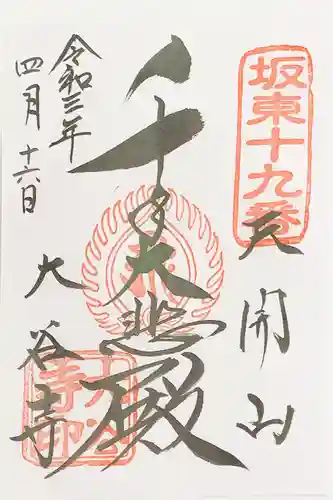 坂東十九番
天開山
千手大悲殿
大谷寺
令和三年
四月十六日
大谷寺印